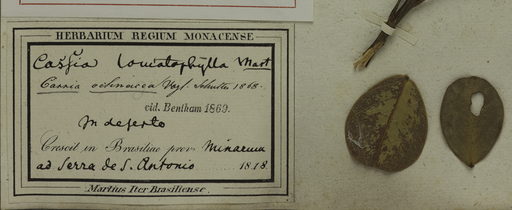 HERBARIUM REGIUM MONACENSE
Cassia lomatophylla Mart
Cassia ochnacea Vogl. 1868.
vid. Bentham 1869.
In deserto
Crescit in Brasiliae prov. Minarum
ad Serra de S. Antonio 1818
Martius Iter Brasiliense.